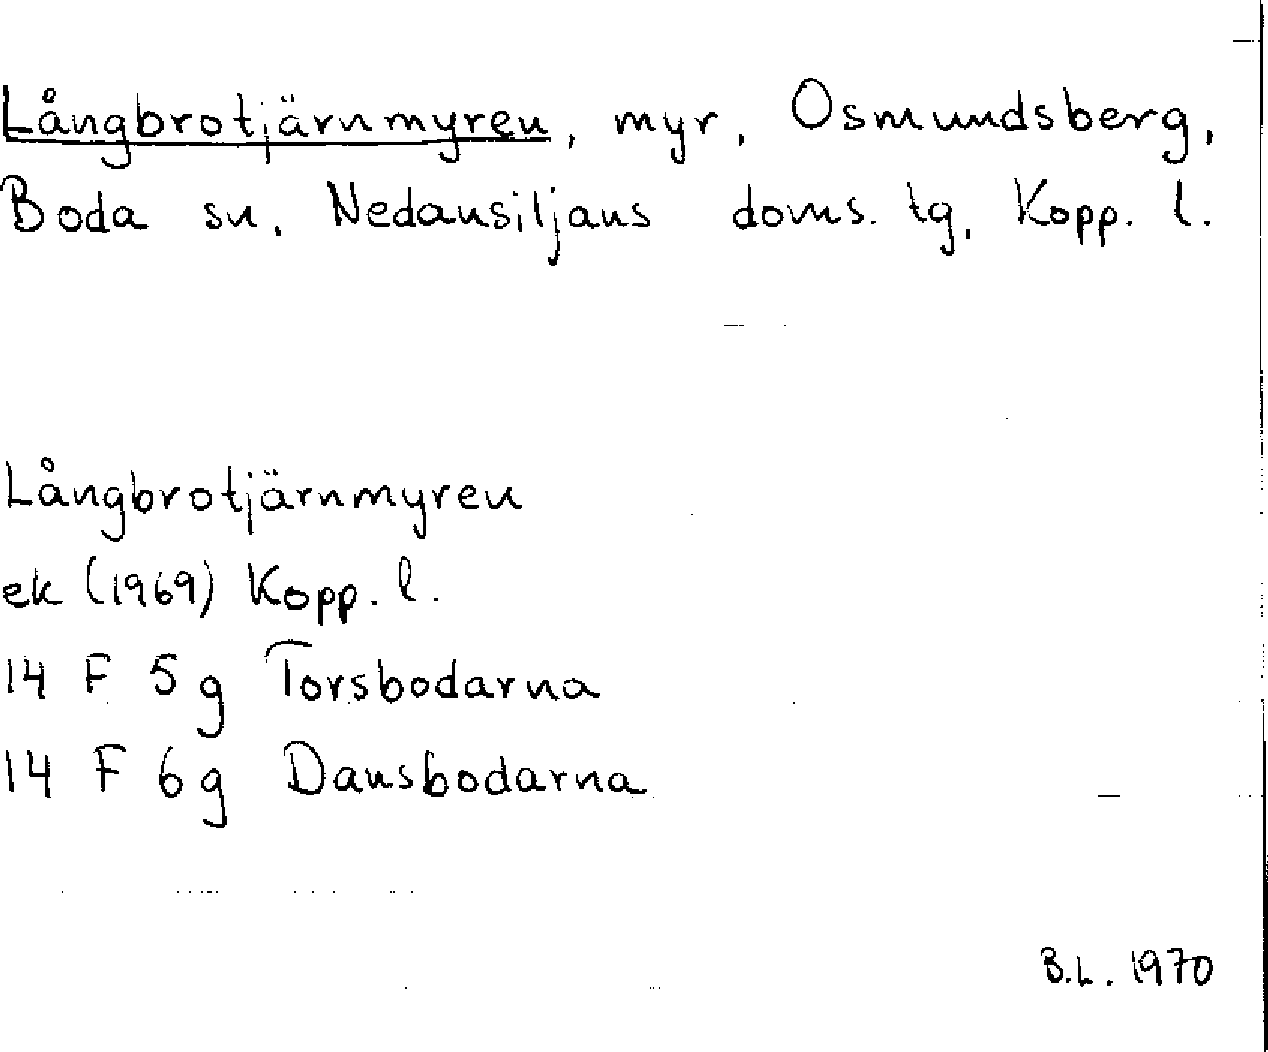 Långbrotjärnmyren, myr, Osmundsberg,
Boda sn, Nedansiljans doms. tg, Kopp. l.
Långbrotjärnmyren
ek (1969) Kopp. l.
14 F 5 g Torsbodarna
14 F 6 g Dansbodarna
B.L. 1970